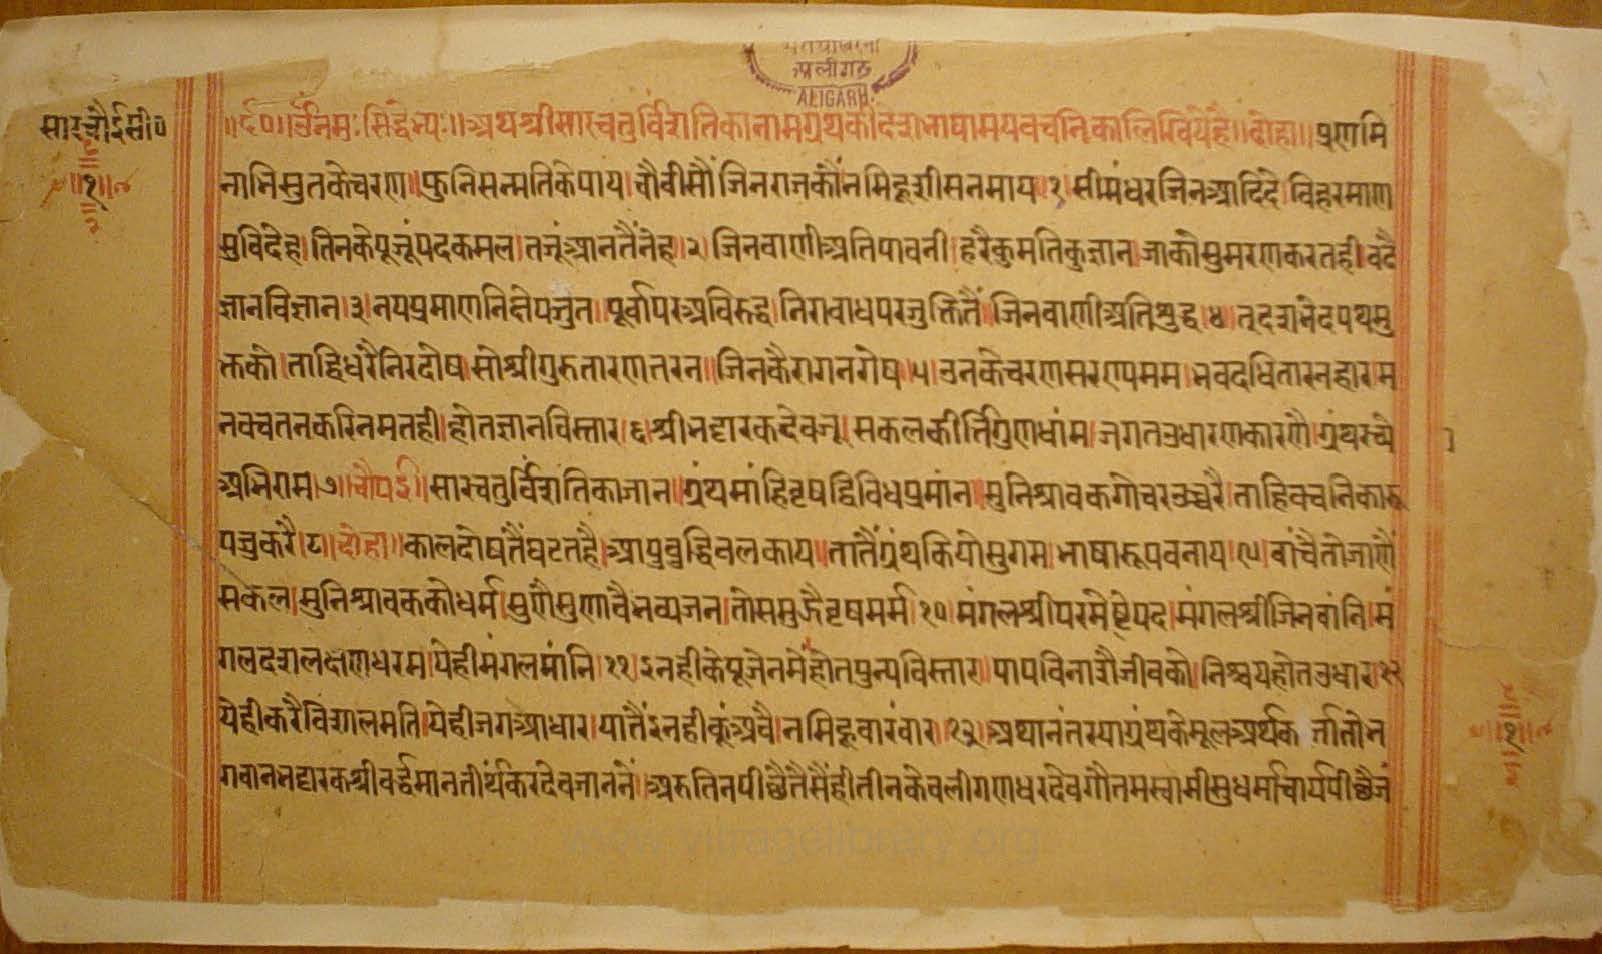 अलीगढ
ALIGARH.
सारचौईसी०
॥१॥
॥ र्द०॥ ॐ नमः सिद्धेभ्यः॥ अथ श्रीसारचतुर्विंशतिकानामग्रंथकीदेशभाषामयवचनिकालिखियेहै॥ दोहा॥ प्रणमि
नाभिसुतकेचरण॥ फुनिसन्मतिकेपाय। चौवीसौंजिनराजकौंनमिहूशीसनमाय।१। सीमंधरजिनआदिदे। विहरमाण
सुविदेह। तिनकेपूजूंपदकमल। तजूंआनतैंनेह।२। जिनवाणीअतिपावनी। हरैकुमतिकुज्ञान। जाकौसुमरणकरतही। वढै
ज्ञानविज्ञान।३। नयप्रमाणनिक्षेपजुत। पूर्वापरअविरुद्ध। निरावाधपरजुक्तितैं। जिनवाणीअतिशुद्ध।४। तृदशभेदपथमु
क्तिको। ताहिधरैनिरदोष। सोश्रीगुरुतारणतरन॥ जिनकैरागनरोष।५। उनकेचरणसरणमम। भवदधितारनहार। म
नवचतनकरिनमतही। होतज्ञानविस्तार।६। श्रीभट्टारकदेवजू। सकलकीर्तिगुणधांम। जगतउधारणकारणै। ग्रंथरच्यै
अभिराम।७॥ चौपई॥ सारचतुर्विंशतिकाजान॥ ग्रंथमांहिवृषद्विविधप्रमांन॥ मुनिश्रावकगोचरउच्चरै। ताहिवचनिकारू
पजुकरै।८। दोहा॥ कालदोषतैंघटतहै। आपुबुद्धिवलकाय॥ तातैंग्रंथकियोसुगम। भाषारूपवनाय।९। वांचैतोजाणैं
सकल। मुनिश्रावककोधर्म। सुणैसुणावैभव्यजन। तोसमुझैवृषमर्म।१०। मंगलश्रीपरमेष्टिपद। मंगलश्रीजिनवांनि। मं
गलदशलक्षणधरम। येहीमंगलमांनि।११। इनहीकेपूजेनमेंहोतपुन्यविस्तार॥ पापविनाशैजीवको। निश्चयहोतउधार।१२
येहीकरैविशालमति। येहीजगआधार। यातैंइनहीकूंअवै। नमिहूवारंवार।१३। अथानंतरयाग्रंथकेमूलअर्थक र्त्तातोभ
गवानभट्टारकश्रीवर्द्धमानतीर्थंकरदेवजाननें॥ अरुतिनपीछैतैसैंहीतीनकेवलीगणधरदेवगौतमस्वामीसुधर्माचार्यपीछैजं
॥१॥
www.vitragelibrary.org